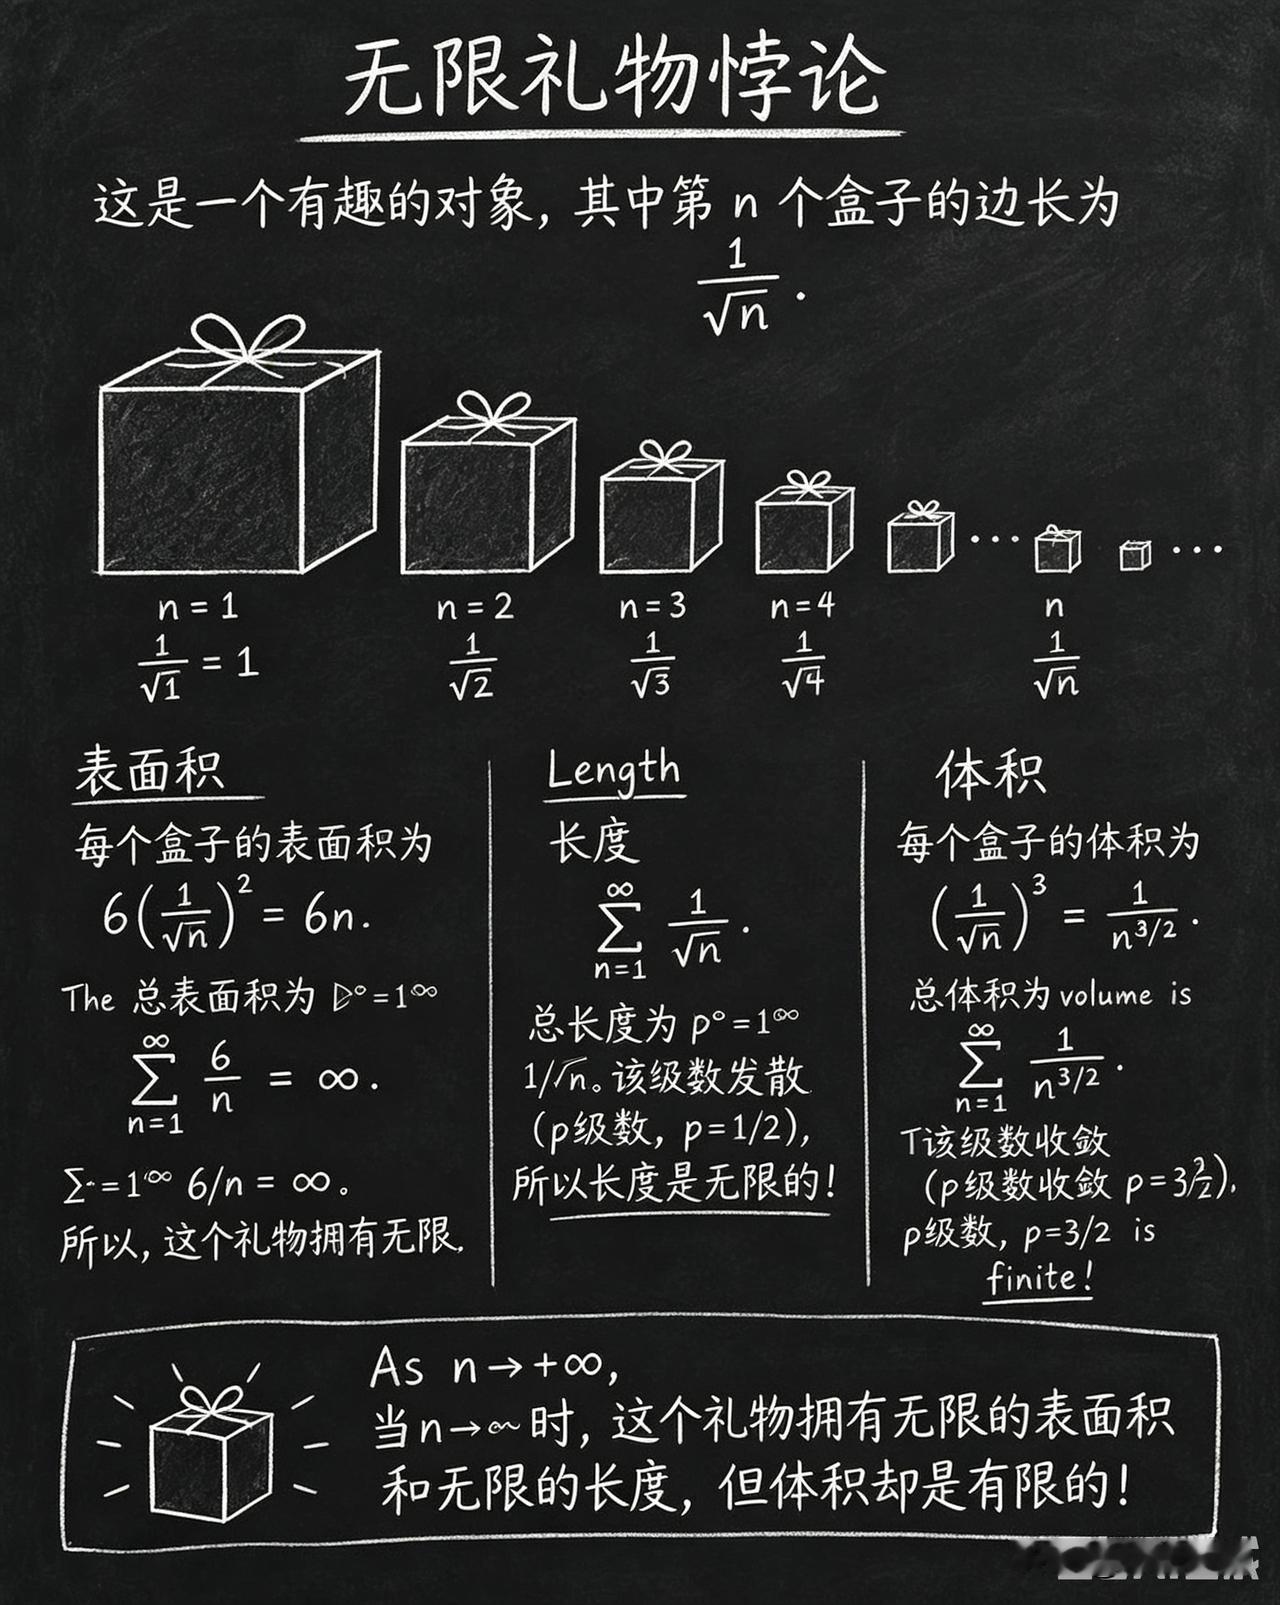 无限礼物悖论
这是一个有趣的对象，其中第 n 个盒子的边长为
1/√n .
n = 1
1/√1 = 1
n = 2
1/√2
n = 3
1/√3
n = 4
1/√4
n
1/√n
表面积
每个盒子的表面积为
6(1/√n)² = 6n.
The 总表面积为 ▷° = 1^∞
∑_{n=1}^{∞} 6/n = ∞ .
∑· = 1^∞ 6/n = ∞。
所以，这个礼物拥有无限.
Length
长度
∑_{n=1}^{∞} 1/√n .
总长度为 p° = 1^∞
1/√n。该级数发散
(p级数，p = 1/2),
所以长度是无限的!
体积
每个盒子的体积为
(1/√n)³ = 1/n^{3/2} .
总体积为 volume is
∑_{n=1}^{∞} 1/n^{3/2} .
T该级数收敛
(p级数收敛 p = 3
p级数，p = 3/2 is
finite!
As n → +∞,
当 n → ∞ 时，这个礼物拥有无限的表面积
和无限的长度，但体积却是有限的!